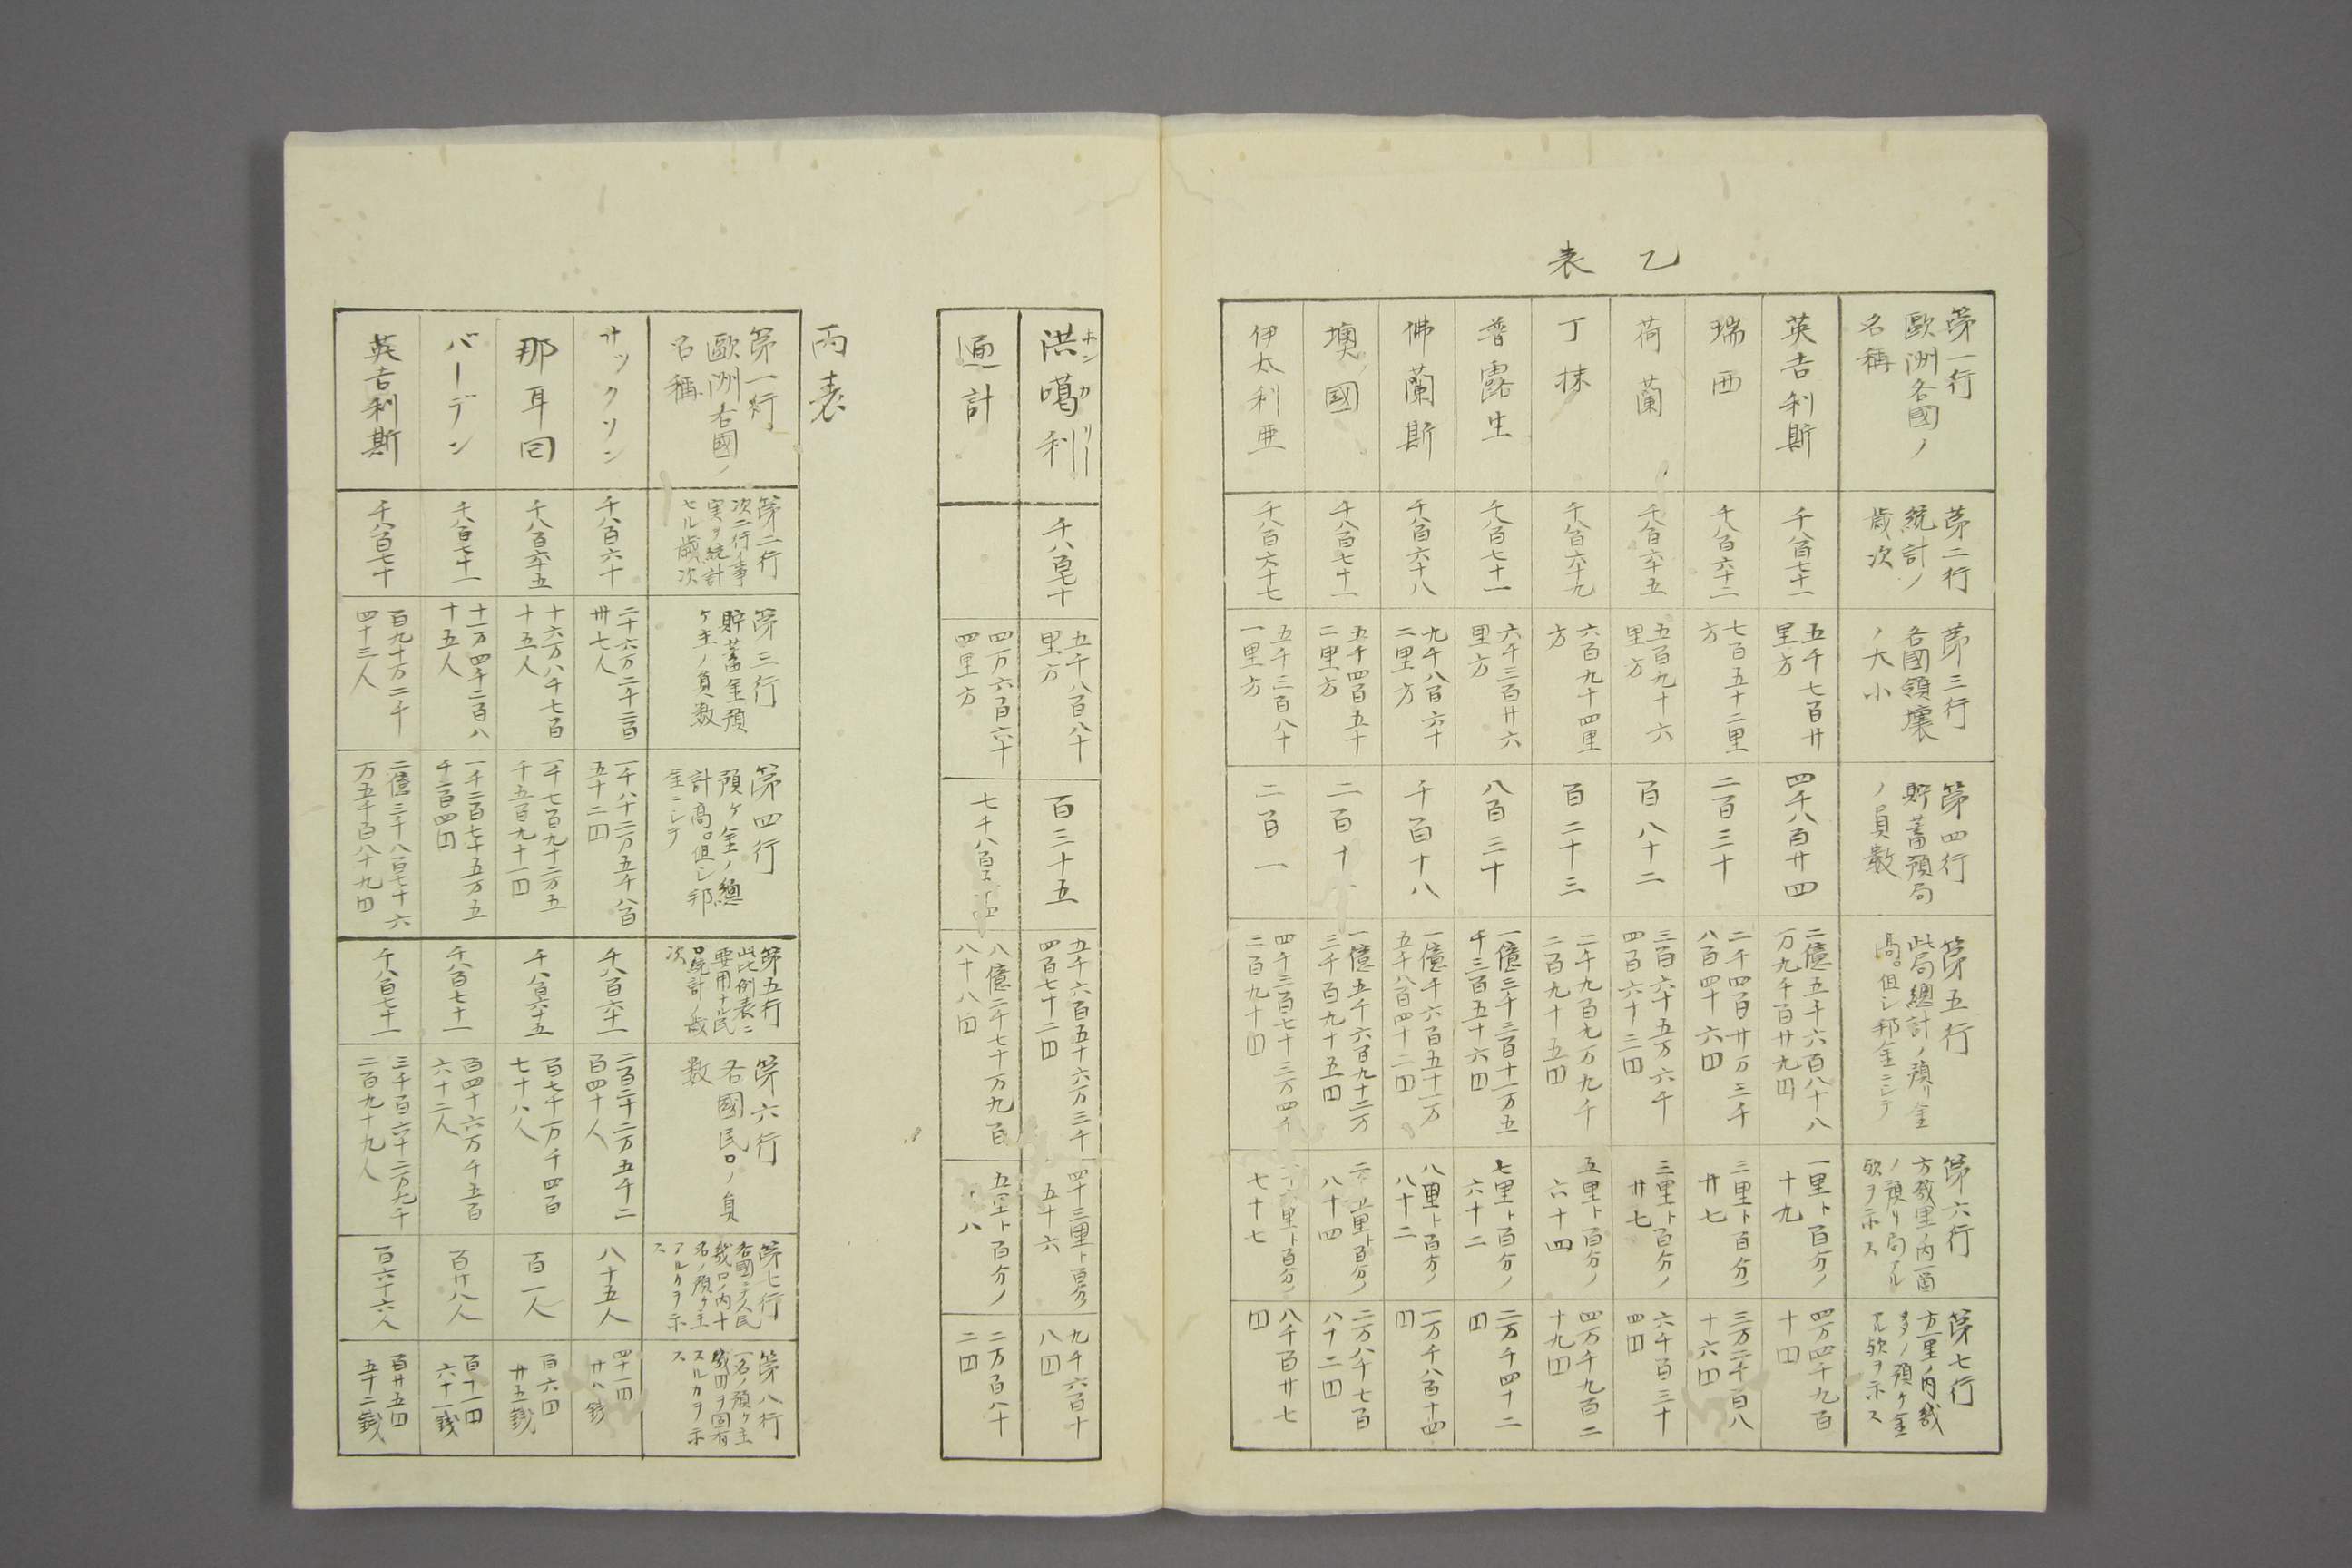 乙表
第一行
歐洲各國ノ
名稱
第二行
統計ノ
歳次
第三行
各國領壤
ノ大小
第四行
貯蓄預局
ノ員數
第五行
此局總計ノ預リ金
高。但シ邦金ニシテ
第六行
方幾里ノ内一箇
ノ預リ局アル
欤ヲ示ス
第七行
方一里ノ内幾
多ノ預ケ金
アル欤ヲ示ス
英吉利斯
千八百七十一
五千七百廿
里方
四千八百廿四
二億五千六百八十八
万九千百廿九円
一里ト百分ノ
十九
四万四千九百
十円
瑞西
千八百六十二
七百五十二里
方
二百三十
二千四百廿万三千
八百四十六円
三里ト百分ノ
廿七
三万二千百八
十六円
荷蘭
千八百六十五
五百九十六
里方
百八十二
三百六十五万六千
四百六十三円
三里ト百分ノ
廿七
六千百三十
四円
丁抹
千八百六十九
六百九十四里
方
百二十三
二千九百九万九千
二百九十五円
五里ト百分ノ
六十四
四万千九百二
十九円
普露生
千八百七十一
六千三百廿六
里方
八百三十
一億三千三百十一万五
千三百五十六円
七里ト百分ノ
六十二
二万千四十二
円
佛蘭斯
千八百六十八
九千八百六十
二里方
千百十八
一億千六百五十一万
五千八百四十二円
八里ト百分ノ
八十二
一万千八百十四
円
墺國
千八百七十一
五千四百五十
二里方
二百十
一億五千六百九十二万
三千百九十五円
里ト百分ノ
八十四
二万八千七百
八十二円
伊太利亜
千八百六十七
五千三百八十
一里方
二百一
四千三百七十三万四千
三百九十円
里ト百分ノ
七十七
八千百廿七
円
洪噶利
ホンガリー
千八百七十
五千八百八十
里方
百三十五
五千六百五十六万三千
四百七十二円
四十三里ト百分ノ
五十六
九千六百十
八円
通計
四万六百六十
四里方
七千八百
八億二千七十万九百
八十八円
五里ト百分ノ
八
二万百八十
二円
丙表
第一行
歐洲各國ノ
名稱
第二行
次二行ノ事
実ヲ統計
セル歳次
第三行
貯蓄金預
ケ主ノ員数
第四行
預ケ金ノ總
計高。但シ邦
金ニシテ
第五行
此比例表ニ
要用ナル民
口統計ノ歳
次
第六行
各國民口ノ員
数
第七行
各國ニテ人民
幾口ノ内十
名ノ預ケ主
アルカヲ示
ス
第八行
一名ノ預ケ主
幾円ヲ固有
スルカヲ示
ス
サックソン
千八百六十
二十六万二千二百
卅七人
一千八十二万五千八百
五十二円
千八百六十一
二百二十二万五千二
百四十人
八十五人
四十一円
廿八銭
那耳回
千八百六十五
十六万八千七百
十五人
一千七百九十二万五
千五百九十一円
千八百六十五
百七十万千四百
七十八人
百一人
百六円
廿五銭
バーデン
千八百七十一
十一万四千二百八
十五人
一千二百七十五万五
千二百四円
千八百七十一
百四十六万千五百
六十二人
百廿八人
百十一円
六十一銭
英吉利斯
千八百七十
百九十万二千
四十三人
二億三千八百七十六
万五千百八十九円
千八百七十一
三千百六十二万九千
二百九十九人
百六十六人
百廿五円
五十二銭